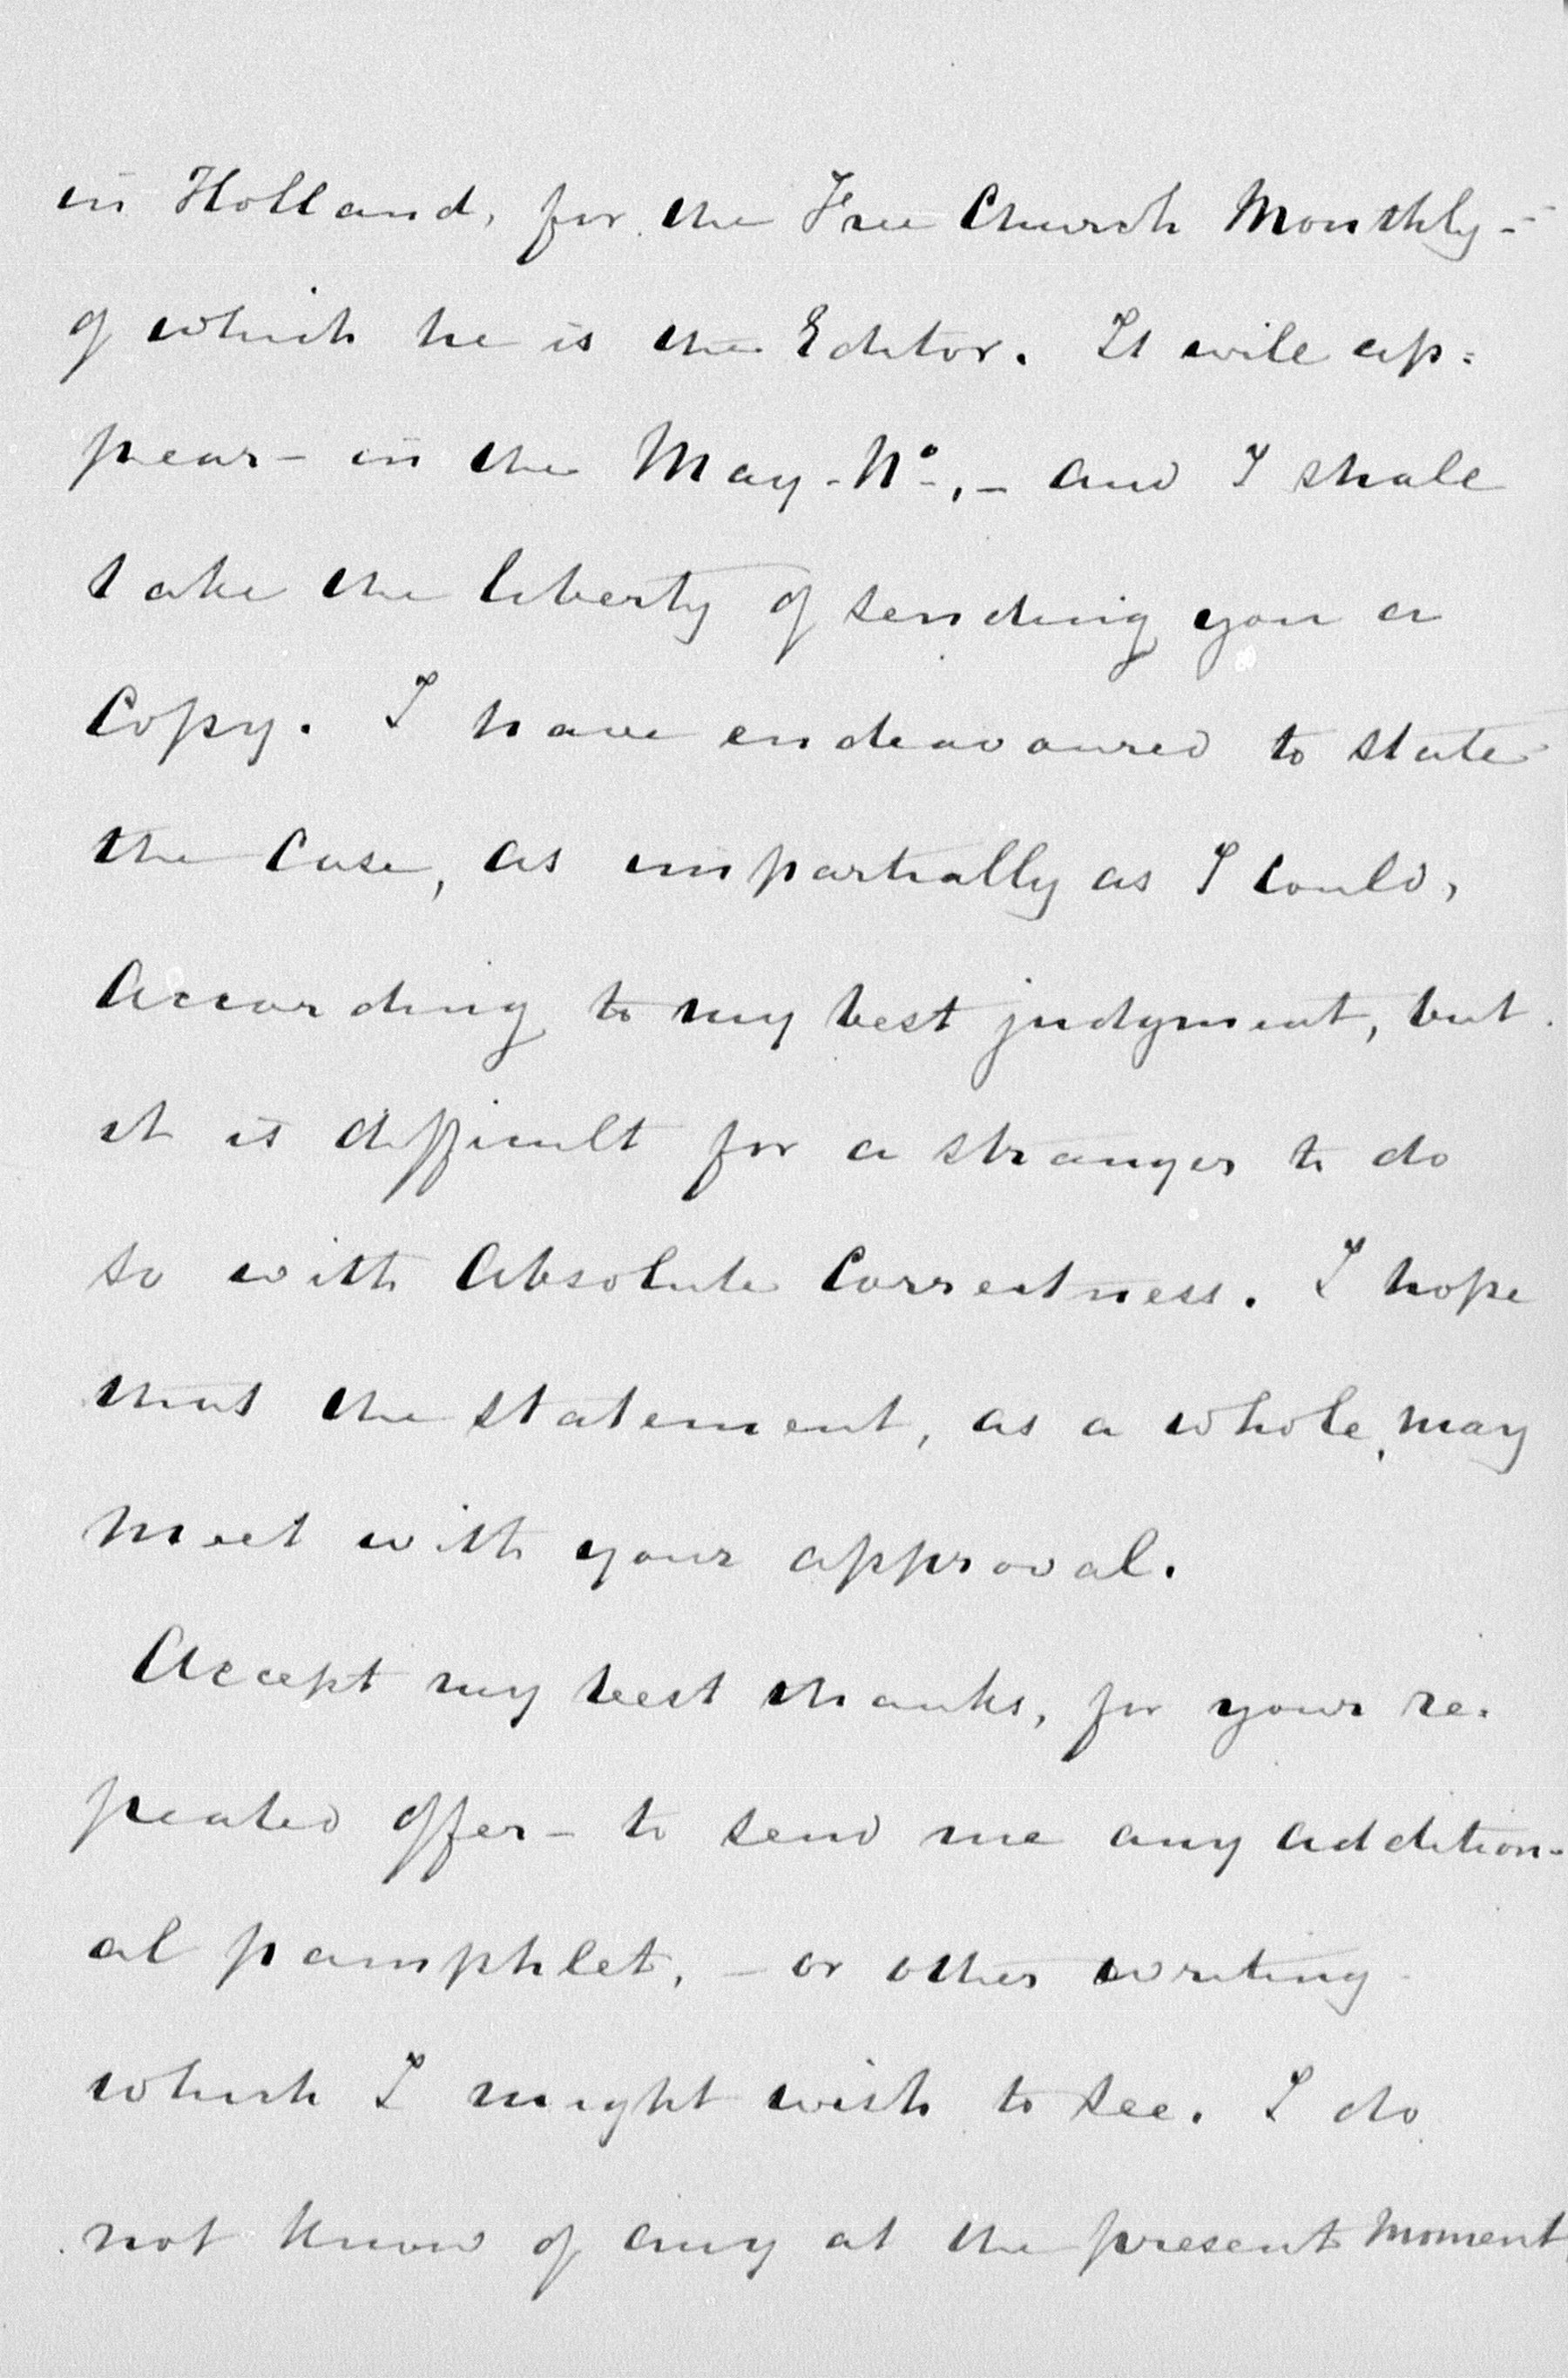 in Holland, for the Free Church Monthly -
of which he is the Editor. It will ap=
pear - in the May - No., - and I shall
take the liberty of sending you a
Copy. I have endeavoured to state
the Case, as impartially as I could,
According to my best judgment, but
it is difficult for a stranger to do
so with Absolute Correctness. I hope
that the statement, as a whole, may
meet with your approval.
Accept my best thanks, for your re-
peated offer - to send me any addition-
al pamphlet, - or other writing
which I might wish to see. I do
not know of any at the present moment